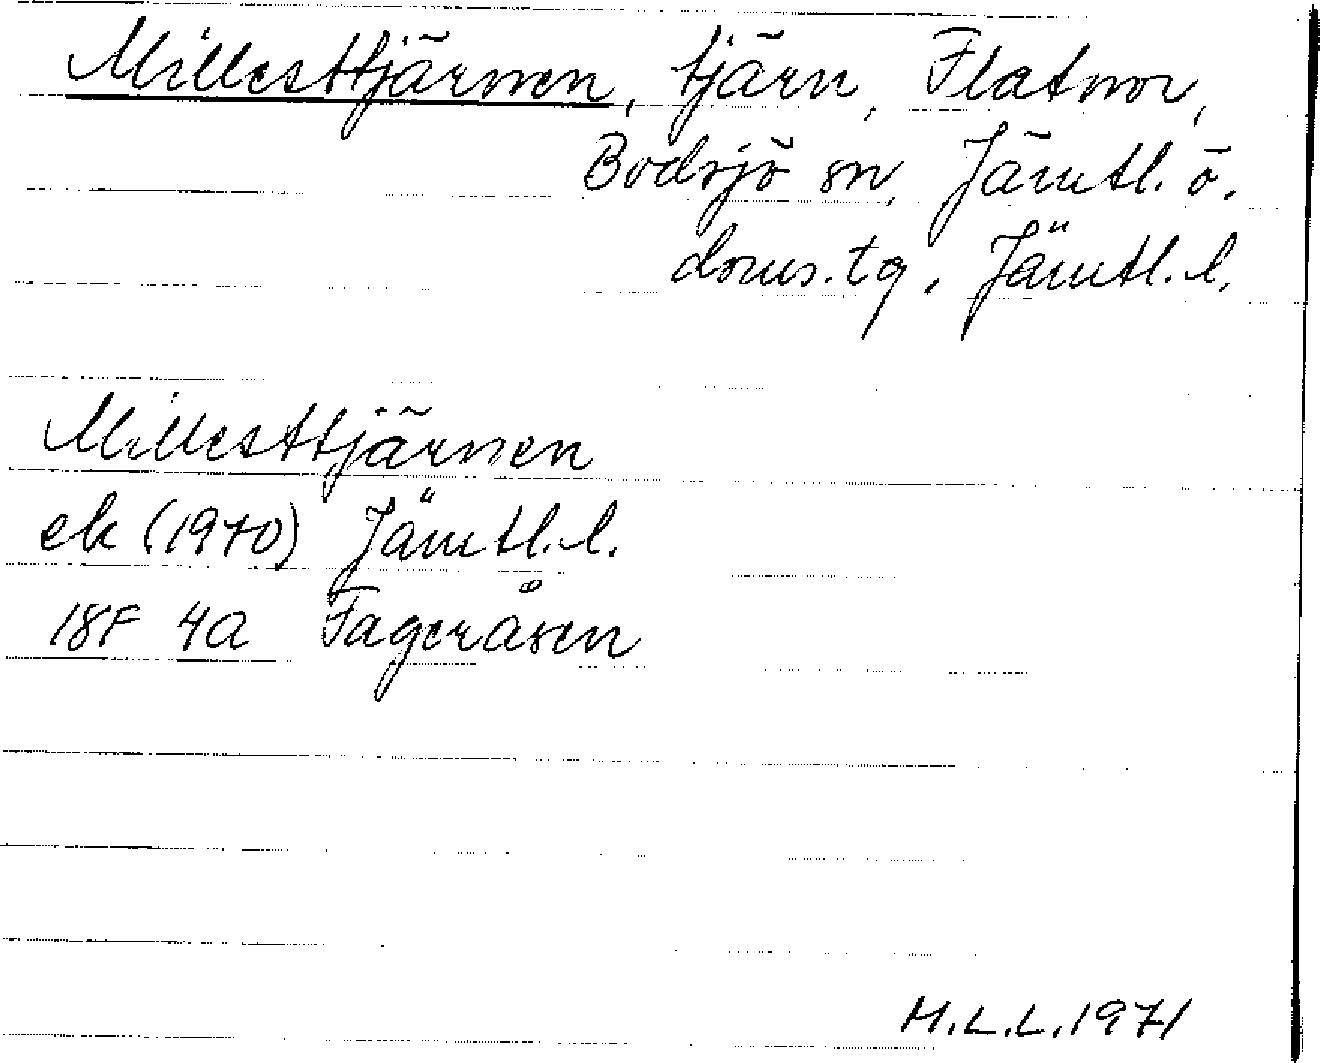 Millesttjärnen, tjärn, Flatnor,
Bodsjö sn, Jämtl. ö.
doms.tg, Jämtl.l.
Millesttjärnen
ek (1970) Jämtl.l.
18F 4a Fageråsen
M.L.L.1971